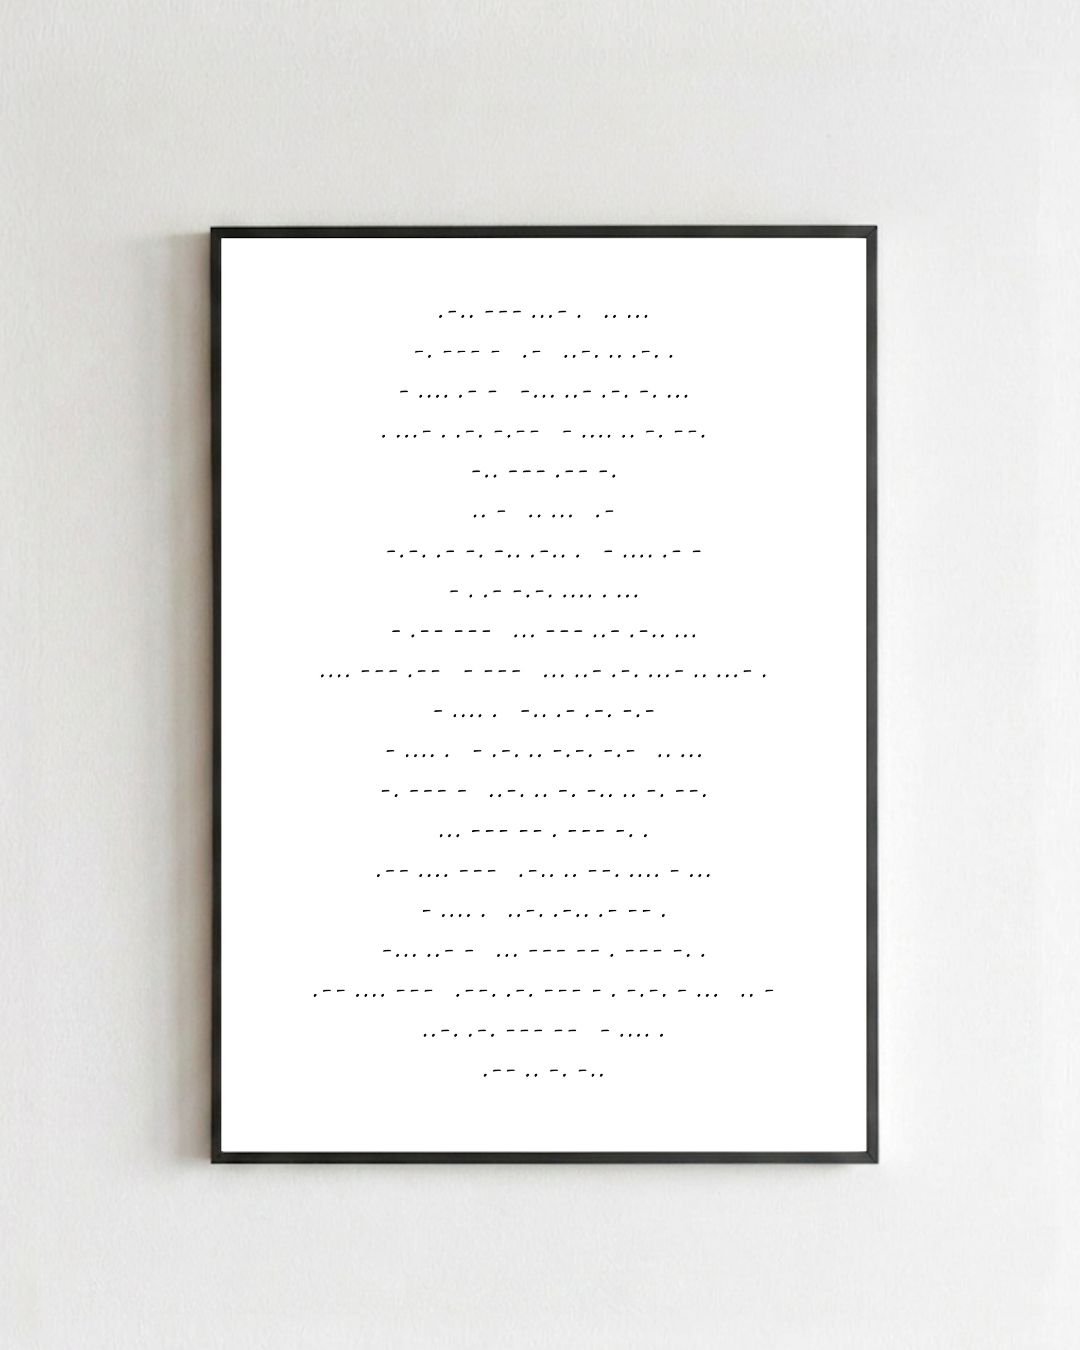 .-.. --- ...- .   .. ...
-. --- -   .-   ..-. .. .-. .
- .... .- -   -... ..- .-. -. ...
. ...- . .-. -.--   - .... .. -. --.
-.. --- .-- -.
.. -   .. ...   .-
-.-. .- -. -.. .-.. .   - .... .- -
- . .- -.-. .... . ...
- .-- ---   ... --- ..- .-.. ...
.... --- .--   - ---   ... ..- .-. ...- .. ...- .
- .... .   -.. .- .-. -.-
- .... .   - .-. .. -.-. -.-   .. ...
-. --- -   ..-. .. -. -.. .. -. --.
... --- -- . --- -. .
.-- .... ---   .-.. .. --. .... - ...
- .... .   ..-. .-.. .- -- .
-... ..- -   ... --- -- . --- -. .
.-- .... ---   .--. .-. --- - . -.-. - ...   .. -
..-. .-. --- --   - .... .
.-- .. -. -..